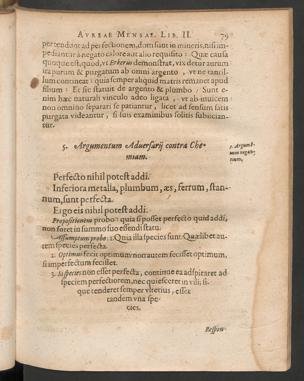 AVREAE MENSAE LIB. II. 79
pertendunt ad perfectionem, dum sunt in mineris, nisi im-
pediantur à negato calore aut alio requisito: Quæ causa
quoque est, quod, vt Erkerus demonstrat, vix detur aurum
ita purum & purgatum ab omni argento, vt ne tantil-
lum contineat: quia semper aliquid matris remanet apud
filium: Et sic statuit de argento & plumbo: Sunt e-
nim hæc naturali vinculo adeò ligata, vt ab inuicem
non omnino separari se patiantur, licet ad sensum satis
purgata videantur, si suis examinibus solitis subiician-
tur.
5. Argumentum Aduersarij contra Che-
miam.
5. Argum
tum,
Perfecto nihil potest addi.
Inferiora metalla, plumbum, æs, ferrum, stan-
num, sunt perfecta.
Ergo eis nihil potest addi.
Propositionem probo: quia si posset perfecto quid addi,
non foret in summo suo essendi statu.
Assumptum probo: 1. Quia illa species sunt: Quælibet au-
tem species perfecta.
2. Optimus fecit optimum: non autem fecisset optimum,
si imperfectum fecisset.
3. Si species non esset perfecta, continuè ea adspiraret ad
speciem perfectiorem, nec quiesceret in vili; si-
que tenderet semper vlterius, esset
tandem vna spe-
cies.
Respon-